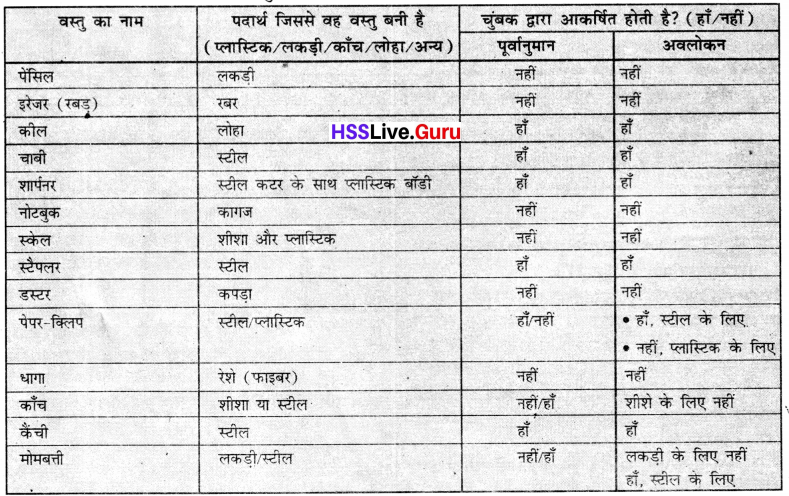 वस्तु का नाम पदार्थ जिससे वह वस्तु बनी है चुंबक द्वारा आकर्षित होती है? (हाँ/नहीं)
(प्लास्टिक/लकड़ी/काँच/लोहा/अन्य) पूर्वानुमान अवलोकन
पेंसिल लकड़ी नहीं नहीं
इरेजर (रबड़) रबर नहीं नहीं
कील लोहा हाँ हाँ
HSSLive.Guru
चाबी स्टील हाँ हाँ
शार्पनर स्टील कटर के साथ प्लास्टिक बॉडी हाँ हाँ
नोटबुक कागज नहीं नहीं
स्केल शीशा और प्लास्टिक नहीं नहीं
स्टैपलर स्टील हाँ हाँ
डस्टर कपड़ा नहीं नहीं
पेपर-क्लिप स्टील/प्लास्टिक हाँ/नहीं • हाँ, स्टील के लिए
• नहीं, प्लास्टिक के लिए
धागा रेशे (फाइबर) नहीं नहीं
काँच शीशा या स्टील नहीं/हाँ शीशे के लिए नहीं
कैंची स्टील हाँ हाँ
मोमबत्ती लकड़ी/स्टील नहीं/हाँ लकड़ी के लिए नहीं
हाँ, स्टील के लिए